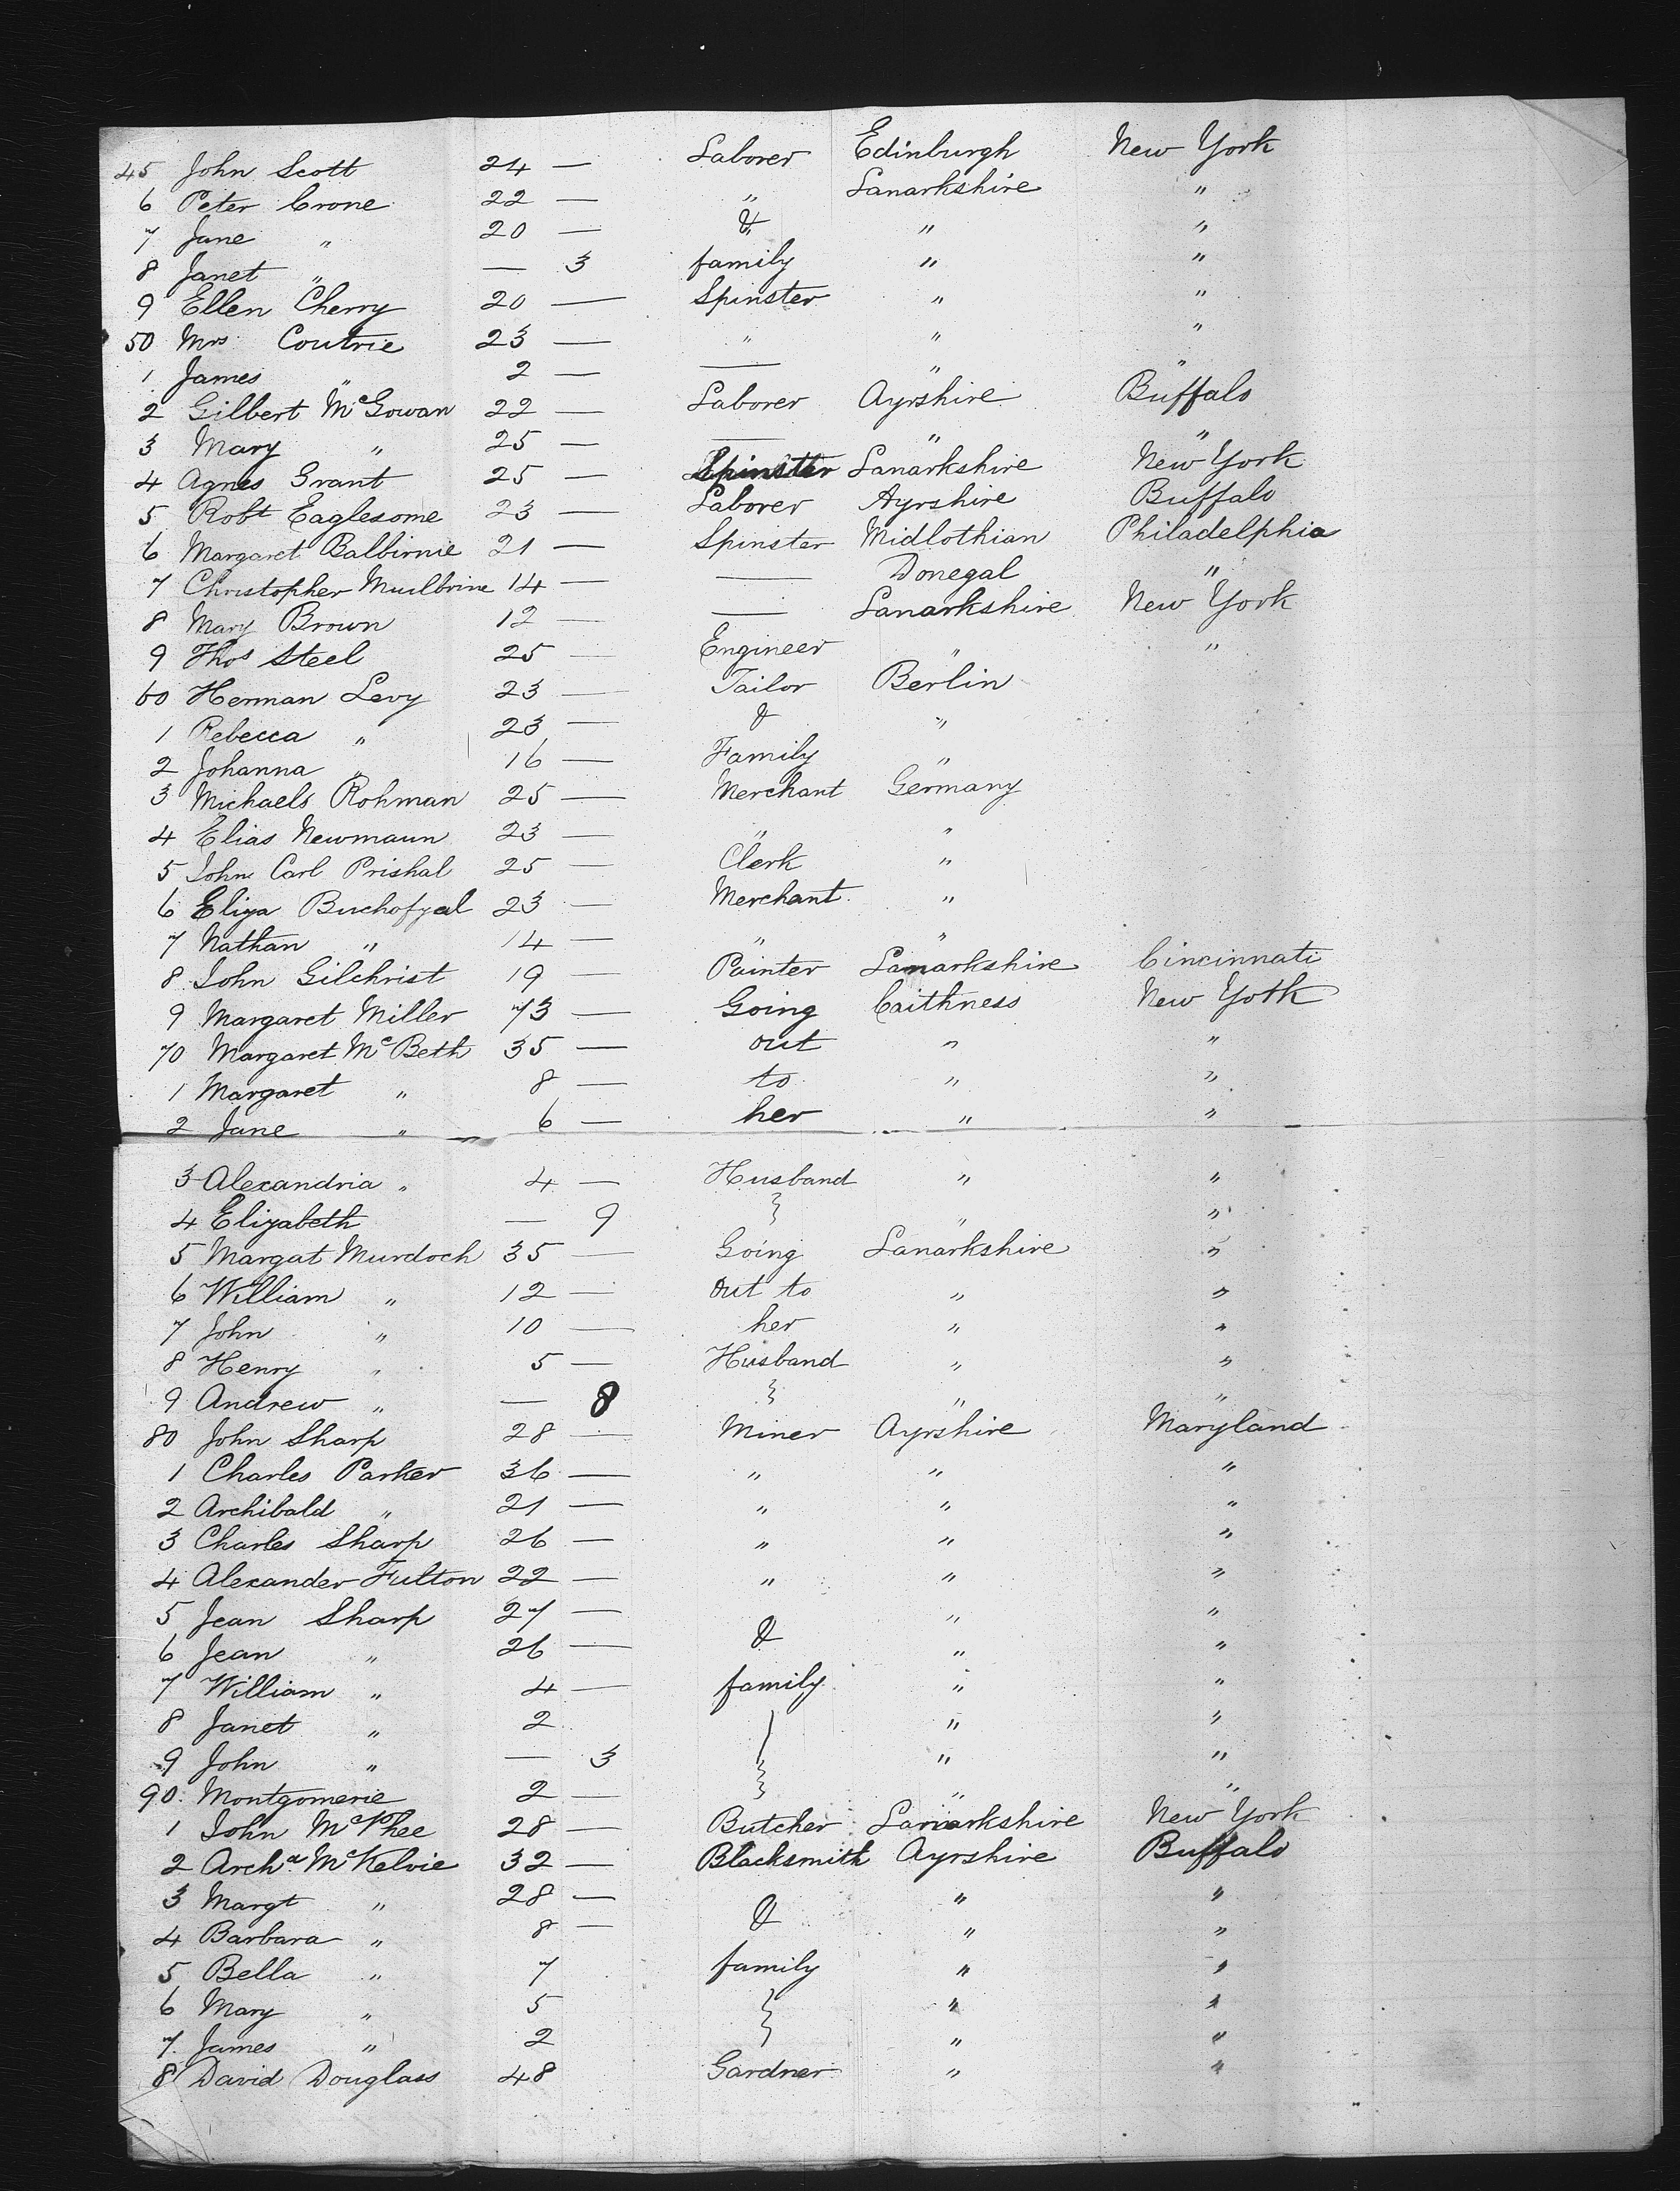 45 John Scott 24 — Laborer Edinburgh New York
6 Peter Crone 22 — " Lanarkshire "
7 Jane " 20 — & " "
8 Janet " — 3 family " "
9 Ellen Cherry 20 — Spinster " "
50 Mrs Coutrie 23 — " " "
1 James " 2 — — " "
2 Gilbert McGowan 22 — Laborer Ayrshire Buffalo
3 Mary " 25 — — " "
4 Agnes Grant 25 — Spinster Lanarkshire New York
5 Robt Eaglesome 23 — Laborer Ayrshire Buffalo
6 Margaret Balbirnie 21 — Spinster Midlothian Philadelphia
7 Christopher 14 — — Donegal "
8 Mary Brown 12 — — Lanarkshire New York
9 Thos Steel 25 — Engineer " "
60 Herman Levy 23 — Tailor Berlin
1 Rebecca " 23 — & "
2 Johanna " 16 — Family "
3 Michaels Rohman 25 — Merchant Germany
4 Elias Newmann 23 — " "
5 John Carl Prishal 25 — Clerk "
6 Eliza 23 — Merchant "
7 Nathan " 14 — " "
8 John Gilchrist 19 — Painter Lanarkshire Cincinnati
9 Margaret Miller 73 — Going Caithness New York
70 Margaret McBeth 35 — out " "
1 Margaret " 8 — to " "
2 Jane " 6 — her " "
3 Alexandria " 4 — Husband " "
4 Elizabeth — 9 " "
5 Margat Murdoch 35 — Going Lanarkshire "
6 William " 12 — out to " "
7 John " 10 — her " "
8 Henry " 5 — Husband " "
9 Andrew " — 8 " "
80 John Sharp 28 — Miner Ayrshire Maryland
1 Charles Parker 36 — " " "
2 Archibald " 21 — " " "
3 Charles Sharp 26 — " " "
4 Alexander Fulton 22 — " " "
5 Jean Sharp 27 — " "
6 Jean " 26 — & " "
7 William " 4 — family " "
8 Janet " 2 " "
9 John " — 3 " "
90 Montgomerie 2 — " "
1 John McPhee 28 — Butcher Lanarkshire New York
2 Archd McKelvie 32 — Blacksmith Ayrshire Buffalo
3 Margt " 28 — " "
4 Barbara " 8 — & " "
5 Bella " 7 family " "
6 Mary " 5 " "
7 James " 2 " "
8 David Douglass 48 Gardner " "